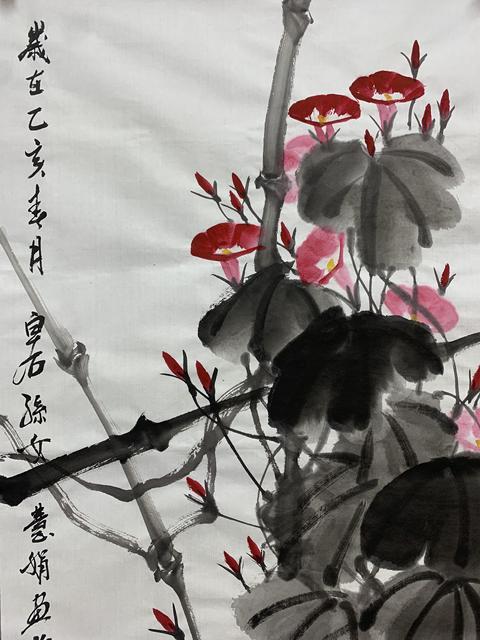 歲在乙亥春月白石孫女慧娟畫